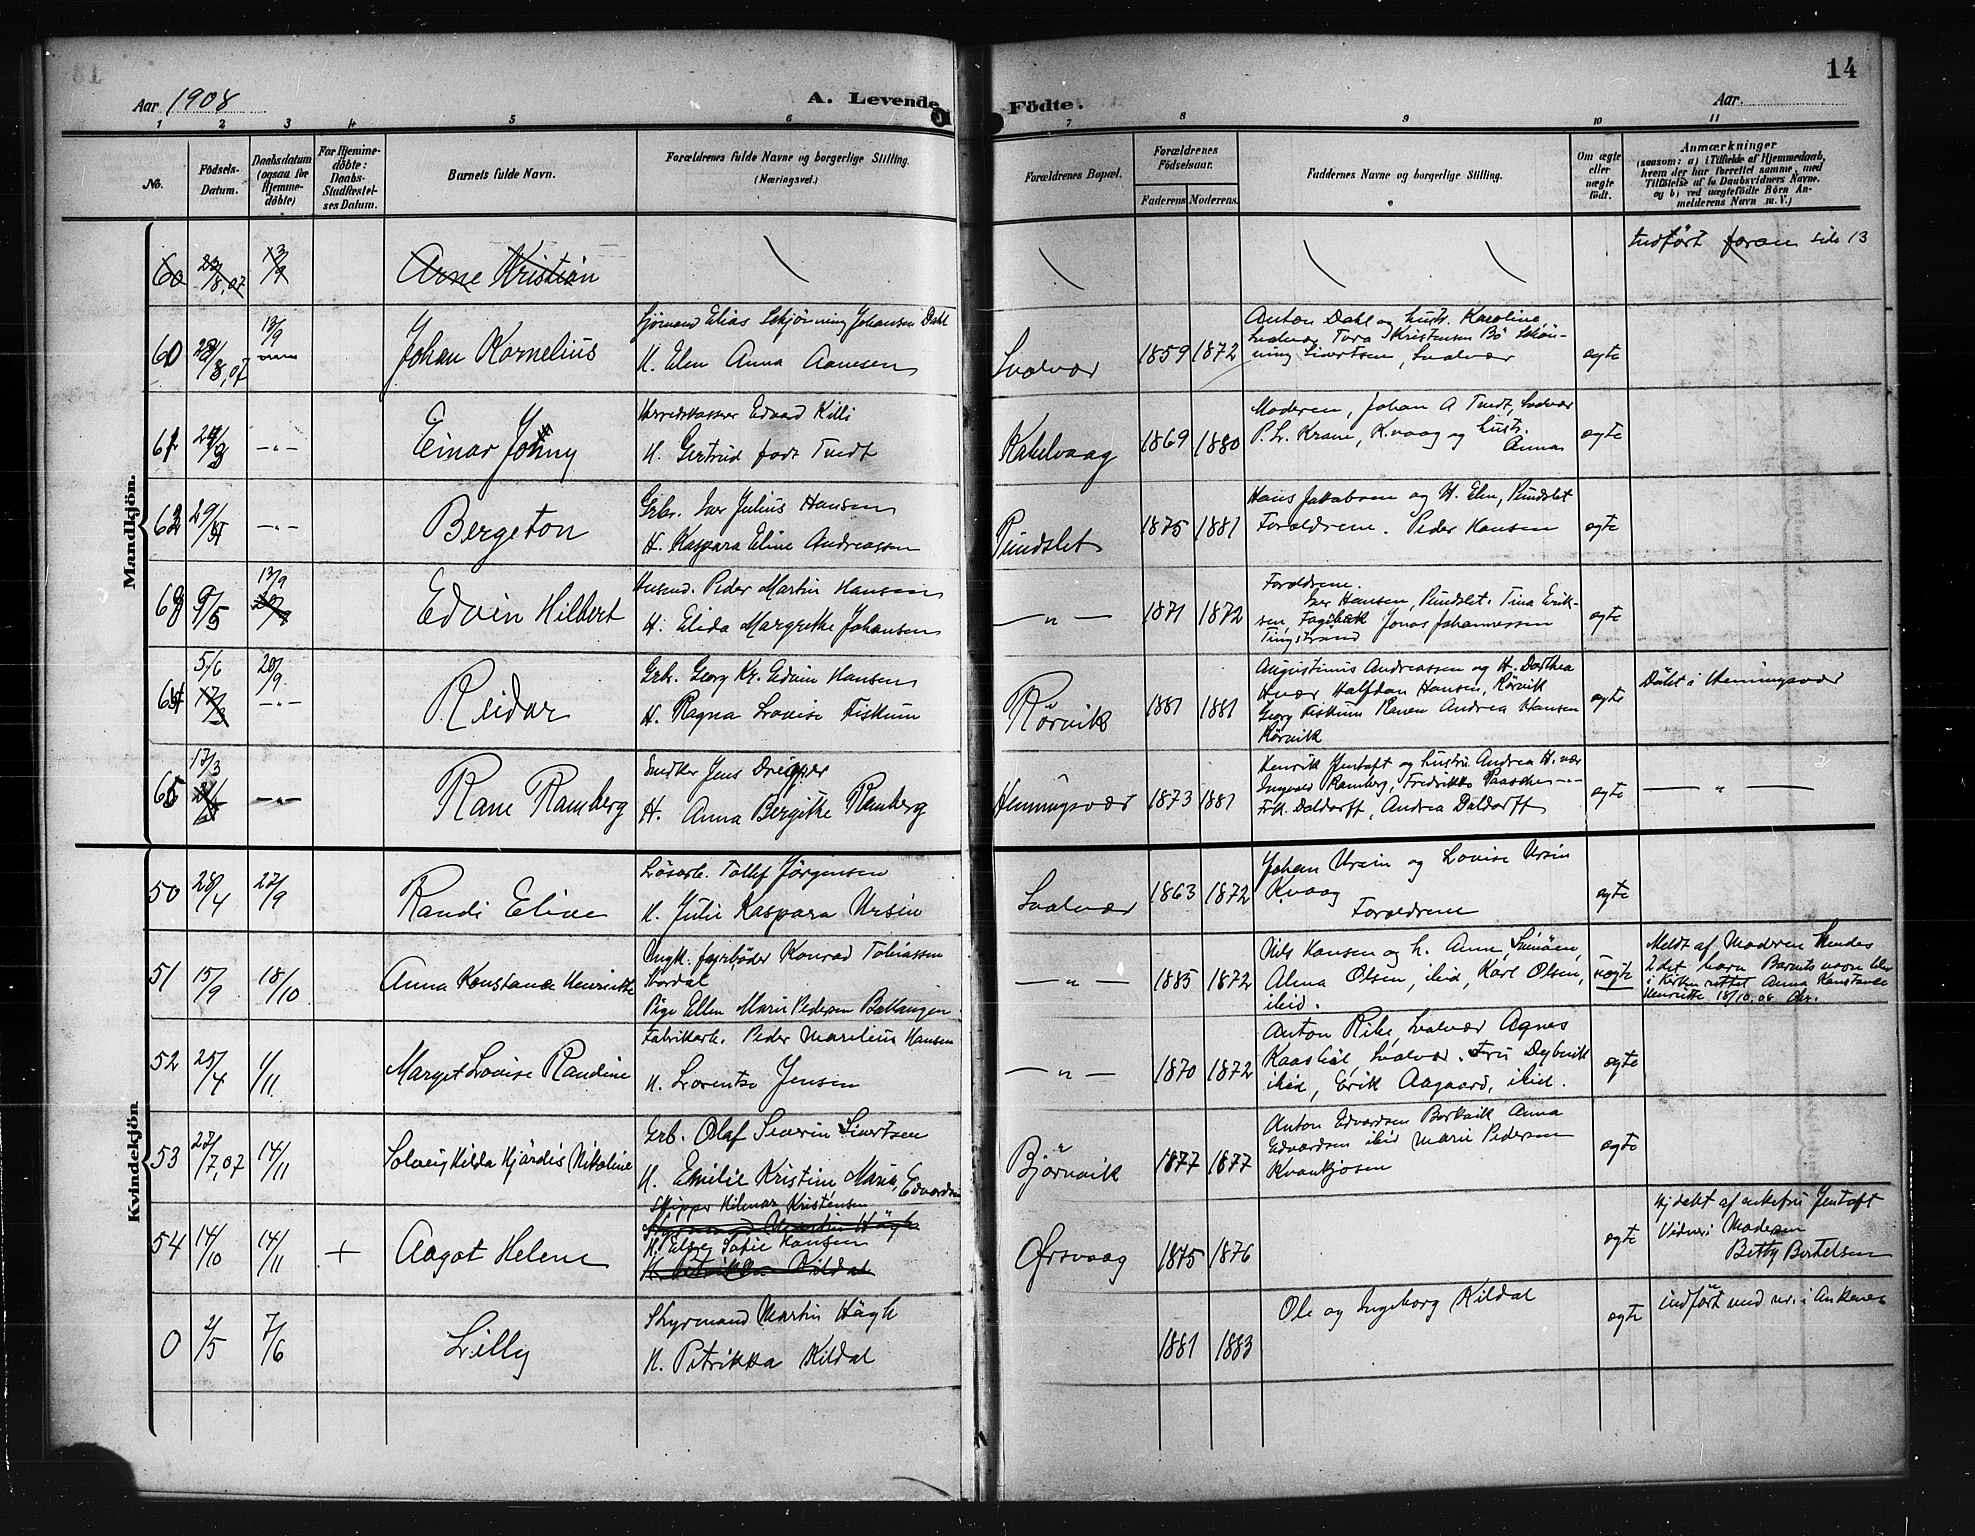 14
Aar 1908
A. Levende Födte.
Aar.
1 2 3 4 5 6 7 8 9 10 11
No.
Födsels-
Datum.
Daabsdatum
(ogsaa for
Hjemme-
döbte)
For Hjemme-
döbte:
Daabs-
Stadfæstel-
ses Datum.
Barnets fulde Navn.
Forældrenes fulde Navne og borgerlige Stilling.
(Næringsvei.)
Forældrenes Bopæl.
Forældrenes
Födselsaar.
Faderens Moderens
Faddernes Navne og borgerlige Stilling.
Om ægte
eller
uægte
födt.
Anmærkninger
(saasom: a) i Tilfælde af Hjemmedaab,
hvem der har forrettet samme, med
Tilföielse af to Daabsvidners Navne.
og b) ved uægtefödte Börn An-
melderens Navn m. V.)
Mandkjön.
60 23/8,07 13/9 Arne Kristian
Indført foran side 13
60 8,07 13/9 Johan Kornelius
Sjømand Elias Schjønning Johansen Dahl
H. Elen Anna Aamesen
Svolvær 1859 1872
Anton Dahl og hustr. Karoline
Svolvær Tora Kristensen Bö Schön-
ning Sivertsen, Svolvær
ægte
61 -„- Einar Johny
Herredskasserer Edvard Killi
H. Gertrud født Tndt
Kabelvaag 1869 1880
Moderen, Johan A Tndt, Svolvær
P. L. Krane, K.vaag og hustr.
Anna
ægte
62 29/4 -„- Bergeton
Grbr. Iver Julius Hansen
H. Kaspara Eline Andreassen
Pundslet 1875 1881
Hans Jakobsen og H. Elen, Pundslet
Foreldrene. Peder Hansen
ægte
63 9/5 13/9 Edvin Hilbert
Husmd. Peder Martin Hansen
H. Elida Margrethe Johansen
— „ — 1871 1872
Foreldrene.
Iver Hansen, Pundslet. Tina Erik-
sen, Fagerbak
Tingstrand Jonas Johannessen
ægte
64 5/6 20/9 -„- Reidar
Grbr. Georg Kr. Edvin Hansen
H. Ragna Lovise Fiskum
Rörvik 1881 1881
Augustinus Andreassen og H. Dorthea
H.vær Halfdan Hansen, Rörvik
Georg Fiskum Ranen Andrea Hansen
Rörvik
ægte
Döbt i Henningsvær
65 17/3 -„- Rane Ramberg
Snedker Jens Dreyer
H. Anna Bergithe Ramberg
Henningsvær 1873 1881
Henrik Jentoft og hustru Andrea H.vær
Ingvald Ramberg, Fredrikke Paasche -„-
Frk. Daldorff, Andrea Daldorff
ægte — „ —
Kvindekjön
50 28/4 27/9 Randi Eline
Lösarb. Tollef Jörgensen
H. Julie Kaspara Ursin
Svolvær 1863 1872
Johan Ursin og Lovise Ursin
Kvaag
Foreldrene
ægte
51 15/9 18/10 Anna Konstance Henriette
Ungk. Konrad Tobiassen
Stordal
Pige Ellen Marie Pedersen Ballangen
— „ — 1885 1872
Nils Hansen og h. Anna, Svinöen,
Alma Olsen, ibid, Karl Olsen,
ibid.
uægte
Meldt af Moderen hendes
2det barn Barnets navn blev
i Kirken rettet Anna Konstance
Henriette 18/10.08.
52 25/4 1/11 Margit Lovise Randine
Fabrikarb. Peder Marelius Hansen
H. Lorentse Jensen
— „ — 1870 1872
Anton Rike, Svolvær Agnes
Kaasböl, Svolvær. Fru Dybvik
ibid, Erik Aagaard, ibid.
ægte
53 27/7,07 14/11 Solveig Hilda Hjördis Nikoline
Grb. Olaf Severin Sivertsen
H. Emilie Kristine Marie Edvardsen
Björnvik 1877 1877
Anton Edvardsen Borkvik Anna
Edvardsen ibid Marie Pedersen
Kvankjosen
ægte
54 14/10 14/11 + Aagot Helene
Skipper Hilmar Kristensen
Styrmand Martin Högh
H. Elise Sofie Hansen
H. Petrikka Kildal
Ørsvaag 1875 1876
ægte
Hj.døbt af enkefru Jentoft
Vidner: Moderen
Betty Bertelsen
0 2/5 7/6 Lilly
Styrmand Martin Högh
H. Petrikka Kildal
1881 1883
Ole og Ingeborg Kildal
ægte
indfört med nr. i Ankenes